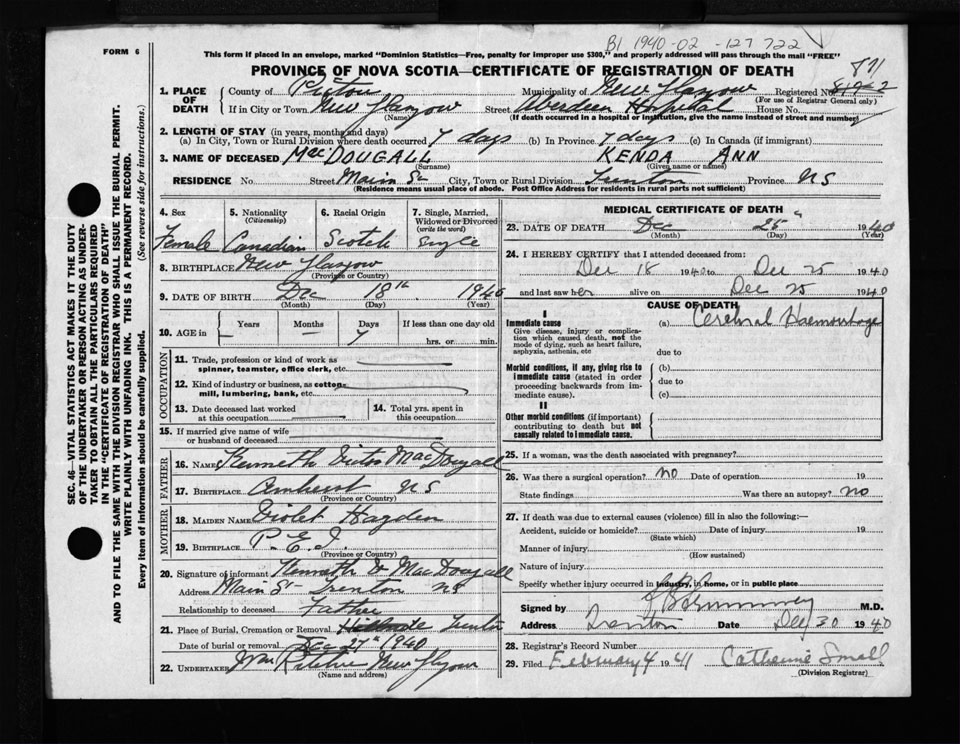 B1 1940-02-127722
FORM 6
This form if placed in an envelope, marked "Dominion Statistics—Free, penalty for improper use $300," and properly addressed will pass through the mail "FREE"
PROVINCE OF NOVA SCOTIA—CERTIFICATE OF REGISTRATION OF DEATH
871
1. PLACE OF DEATH
County of Pictou Municipality of New Glasgow Registered No.
(For use of Registrar General only)
If in City or Town New Glasgow Street Aberdeen Hospital House No.
(Name) (If death occurred in a hospital or institution, give the name instead of street and number)
2. LENGTH OF STAY (in years, months and days)
(a) In City, Town or Rural Division where death occurred 7 days (b) In Province 7 days (c) In Canada (if immigrant)
3. NAME OF DECEASED MacDOUGALL KENDA ANN
(Surname) (Given name or names)
RESIDENCE No Street Main St City, Town or Rural Division Trenton Province NS
(Residence means usual place of abode. Post Office Address for residents in rural parts not sufficient)
4. Sex
Female
5. Nationality
(Citizenship)
Canadian
6. Racial Origin
Scotch
7. Single, Married, Widowed or Divorced
(write the word)
Single
8. BIRTHPLACE New Glasgow
(Province or Country)
9. DATE OF BIRTH Dec 18th 1940
(Month) (Day) (Year)
10. AGE in
Years Months Days If less than one day
— — 7 hrs. or min.
OCCUPATION
11. Trade, profession or kind of work as
spinner, teamster, office clerk, etc.
12. Kind of industry or business, as cotton-
mill, lumbering, bank, etc.
13. Date deceased last worked
at this occupation
14. Total yrs. spent in
this occupation
15. If married give name of wife
or husband of deceased
FATHER
16. Name Kenneth Victor MacDougall
17. Birthplace Amherst NS
(Province or Country)
MOTHER
18. Maiden Name Violet Hayden
19. Birthplace P.E.I.
(Province or Country)
20. Signature of informant Kenneth V MacDougall
Address Main St Trenton NS
Relationship to deceased Father
21. Place of Burial, Cremation or Removal Trenton
Date of burial or removal Dec 27th 1940
22. UNDERTAKER Wm Ritchie New Glasgow
(Name and address)
MEDICAL CERTIFICATE OF DEATH
23. DATE OF DEATH Dec 25th 1940
(Month) (Day) (Year)
24. I HEREBY CERTIFY that I attended deceased from:
Dec 18 1940 to Dec 25 1940
and last saw her alive on Dec 25 1940
CAUSE OF DEATH
I
Immediate cause (a) Cerebral Haemorrhage
Give disease, injury or complica-
tion which caused death, not the
mode of dying, such as heart failure,
asphyxia, asthenia, etc due to
Morbid conditions, if any, giving rise to (b)
immediate cause (stated in order due to
proceeding backwards from im-
mediate cause). (c)
II
Other morbid conditions (if important)
contributing to death but not
causally related to immediate cause.
25. If a woman, was the death associated with pregnancy?
26. Was there a surgical operation? no Date of operation 19
State findings Was there an autopsy? no
27. If death was due to external causes (violence) fill in also the following:—
Accident, suicide or homicide? Date of injury 19
(State which)
Manner of injury
(How sustained)
Nature of injury
Specify whether injury occurred in industry, in home, or in public place
Signed by M.D.
Address Trenton Date Dec 30 1940
28. Registrar's Record Number
29. Filed February 4 1941 Catherine Small
(Division Registrar)
SEC. 46—VITAL STATISTICS ACT MAKES IT THE DUTY
OF THE UNDERTAKER OR PERSON ACTING AS UNDER-
TAKER TO OBTAIN ALL THE PARTICULARS REQUIRED
IN THE "CERTIFICATE OF REGISTRATION OF DEATH"
AND TO FILE THE SAME WITH THE DIVISION REGISTRAR WHO SHALL ISSUE THE BURIAL PERMIT.
WRITE PLAINLY WITH UNFADING INK. THIS IS A PERMANENT RECORD.
Every item of information should be carefully supplied. (See reverse side for instructions.)